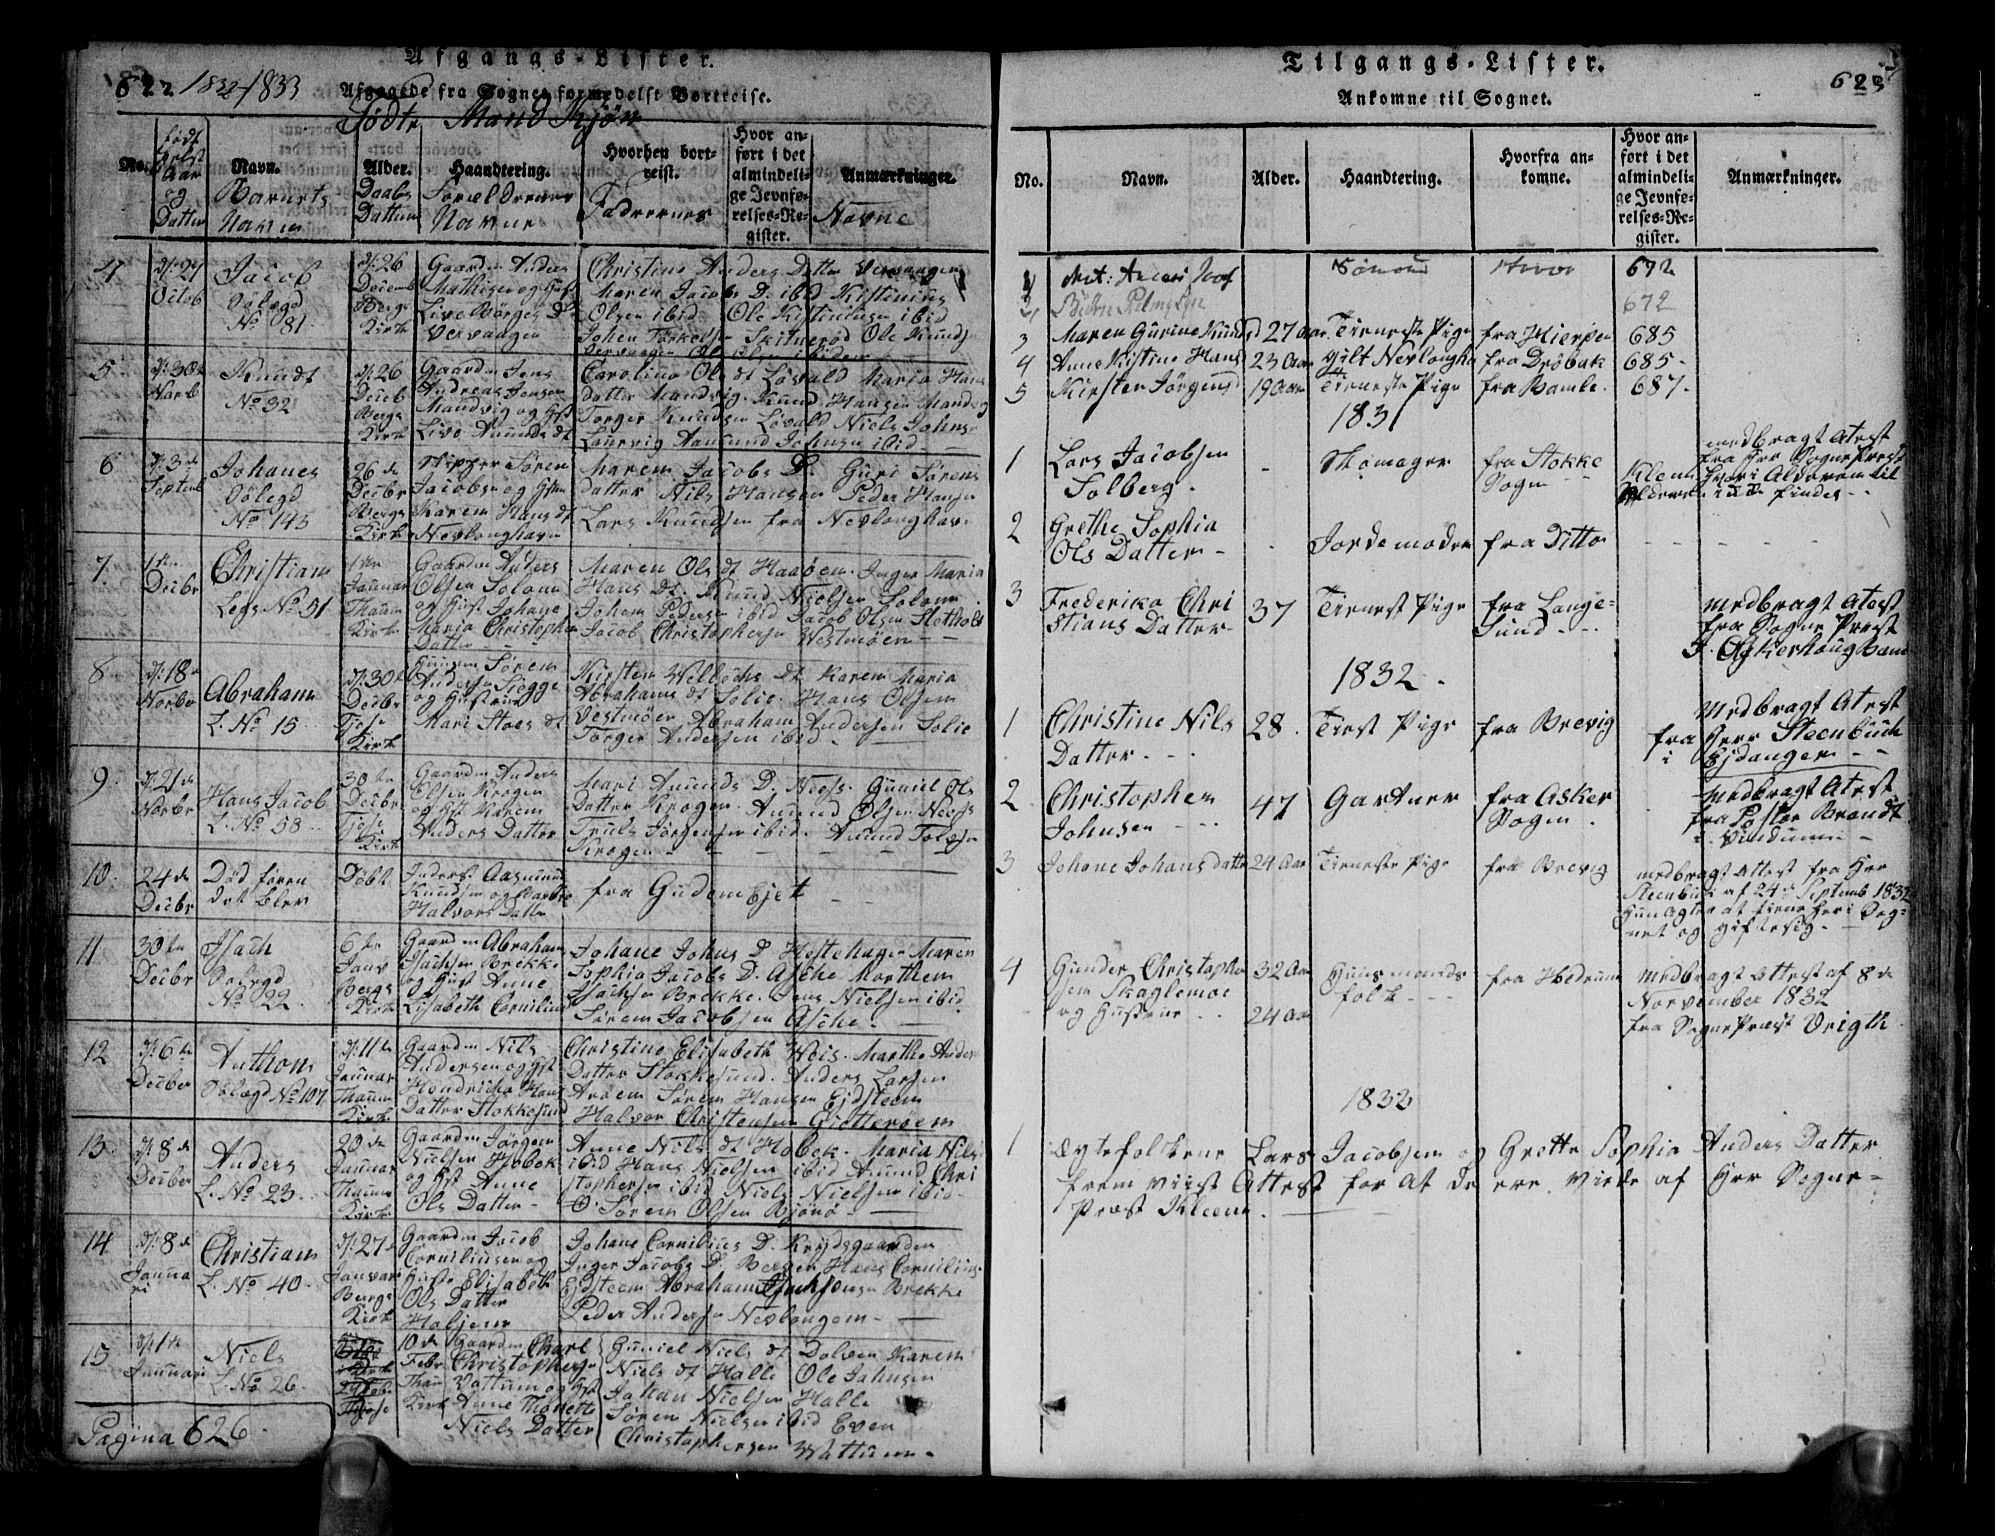 Afgangs-Lister.
822 1832/1833
Afgaaede fra Sognet formedelst Bortreise.
Fødte Mand Kjøn
No.
født
Aar
og
Datter
Navn.
Barnets
Navn
Alder.
Daabs
Dattum
Haandtering.
Foræl drenes
Navne
Hvorhen bort-
reist.
Faderenes
Hvor an-
ført i det
almindeli-
ge Jevnfø-
relses-Re-
gister.
Anmærkninger.
Navne
4
d: 27
Octob
Jacob
Sølægd
No 81.
d: 26
Decemb
Bergs
Kirk
Gaardm Anders
Mathisen og Hust
Live Børges D
Vervaagen
Christine Anders Datter Vervaagen
Maren Jacobs D. ibid Kistinius
Olsen ibid Ole Kistinusen ibid
Johen Torkelsen Skitnerød Ole Knuds
5
d: 30t
Novb
Knudt
No 32
d: 26
Decb
Bergs
Kirk
Gaardm Jens
Andreas Jensen
Mandvig og Hst
Live Amunds dt
Caroline Ols dt Løvald Maria Hans
datter Mandvig. Knud Hansen Mandvig
Torger Knudsen Løvald Niels Johns
Laurvig Aamund Johnsen ibid
6
d: 3 de
Septemb
Johanes
Sølegd
No 143
26 de
Decbr
Bergs
Kirk
Skipper Søren
Jacobsen og Hstn
Karen Hans dt
Nevlonghavn
Maren Jacobs D. Guri Sørens
datter Nils Hansen Peder Hansen
Lars Knudsen fra Nevlonghavn
7.
1 ste
Decbr
Christian
Legs No 51
1 ste
Jannuar
Thaum
Kirk
Gaardm Anders
Olsen Solum
og Hust Johane
Maria Christophe
Datter
Maren Ols dt Haaøen. Inger Maria
Hans dt. Knud Nielsen Solum
Johan Pedersen ibid Jacob Olsen Sletholt
Jacob Christophersen Vestmøen
8
d: 18 de
Novbr
Abraham
L. No 15
d: 30 te
Decbr
Tjøse
Kirk
Huusm Søren
Andersen Siegge
og Hustrue
Mari Stoes dt
Kirsten Wellochs dt Karen Maria
Abrahams dt Solie. Hans Olsen
Vestmøen Abraham Andersen Solie
Torger Andersen ibid
9.
d: 21 de
Novbr
Hans Jacob
L. No 58
30 te
Decbr
Tjøse
Kirk
Gaardm Anders
Olsen Krogen
og Hst Karen
Anders Datter
Mari Amunds D. Neess. Guniel Ols
Datter Krogen. Amund Olsen Neess
Truls Jørgensen ibid. Amund Tolfsn
Krogen
10.
24 de
Decbr
Død føren
det blev
Døbt
Inders: Aasmund
Knudsen og Barbro
Halvors Datter
fra Gudem Eje t
11
30 te
Decbr
Isach
Sølegd
No 22.
6 te
Janv
Bergs
Kirk
Gaardm Abraham
Isachsen Brekke
og Hust Anne
Lisabeth Cornilius
Johane Johns D. Hestehagen Maren
Sophia Jacobs D. Asche Marthem
Isachsen Brekke. Jens Nielsen ibid
Søren Jacobsen Asche.
12
d: 6 te
Decber
Anthon
Sølægd No 107
d: 11 te
Januar
Thaum
Kirk
Gaardm Nils
Andersen og Hst
Hendricha Hans
Datter Stokkesund
Christine Elisabeth Weis. Marthe Anders
Datter Stokkesund. Anders Larsen
Arøen Søren Hansen Eidsteen
Halvor Christensen Giotterøen
13.
d: 8 de
Decber
Anders
L. No 23.
20 de
Januar
Thaum
Kirk
Gaardm Jørgen
Nielsen Hobek
og Hst Anne
Ols Datter
Anne Nils dt Hobek. Maria Nils
ibid Hans Nielsen ibid Amund Chri
stophersen ibid Niels Nielsen ibid
O Søren Olsen Bjønø
14
d: 8 de
Janua
Christian
L. No 40.
d: 27 de
Januar
Bergs
Kirk
Gaardm Jacob
Corniliusen og
Hust Elisabeth
Ols Datter
Haljem
Johane Cornilius D. Krydsgaarden
Inger Jacobs D. Bergen Hans Cornilius
Eidsteen Abraham Isachsen Brekke
Peder Andersen Nevlongen
15
d: 1 te
Januar
Niels
L. No 26.
10 de
Febr
Thaum
Kirk
Gaardm Charl
Christophersen
Vattum og Hst
Anne Thonette
Niels Datter
Guniel Niels dt Dolven Karen
Niels dt Halle Ole Johnsen
Johan Nielsen Halle
Søren Nielsen ibid Even
Christophersen Wattum
Pagina 626
Tilgangs-Lister.
623
Ankomne til Sognet.
No.
Navn.
Alder.
Haandtering.
Hvorfra an-
komne.
Hvor an-
ført i det
almindeli-
ge Jevnfø-
relses-Re-
gister.
Anmærkninger.
1
672
2
672
3 Maren Gurine Knuds d 27 Aar Tieneste Pige fra Hierpen 685
4 Anne Kistine Hans 23 Aar gift Nevlongha fra Drøbak 685
5 Kirsten Jørgens d 19 Aar Tieneste Pige fra Bamle 687
1831
1
Lars Jacobsen
Solberg
Skomager
fra Stokke
Sogn
Kleem
medbragt Atest
fra Her Sogne Prest
hvori Alderen til
findes
2
Grethe Sophia
Ols Datter
Jordemoder
fra Ditto
3
Frederika Chri
stians Datter
37
Tienest Pige
fra Lange=
sund
medbragt Atest
fra Sogne Prest
1832
1
Christine Nils
Datter
28
Tiest Pige
fra Brevig
Medbragt Atest
fra Herr Steenbuch
i Eidanger
2
Christophen
Johnsen
47
Gartner
fra Asker
Sogn
Medbragt Atest
fra Pastor Brandt
3
Johane Johans datter
24 Aar
Tieneste Pige
fra Brevig
medbragt Attest fra Her
Steenbuch af 24 de Septemb 1832
hun agter at tiene her i Sog=
net og giftesig.
4
Gunder Christophe
sen Skaglemoe
og Hustrue
32 Aar
24 Aar
Huusmands
folk
fra Hedrum
Medbragt Attest af 8 de
November 1832
fra Sogne Præst Vrigth
1833
1 Ægtefolkene Lars Jacobsen og Grette Sophia Anders Datter
frem viist Attest for at de ere viede af Herr Sogne=
Præst Kleem.